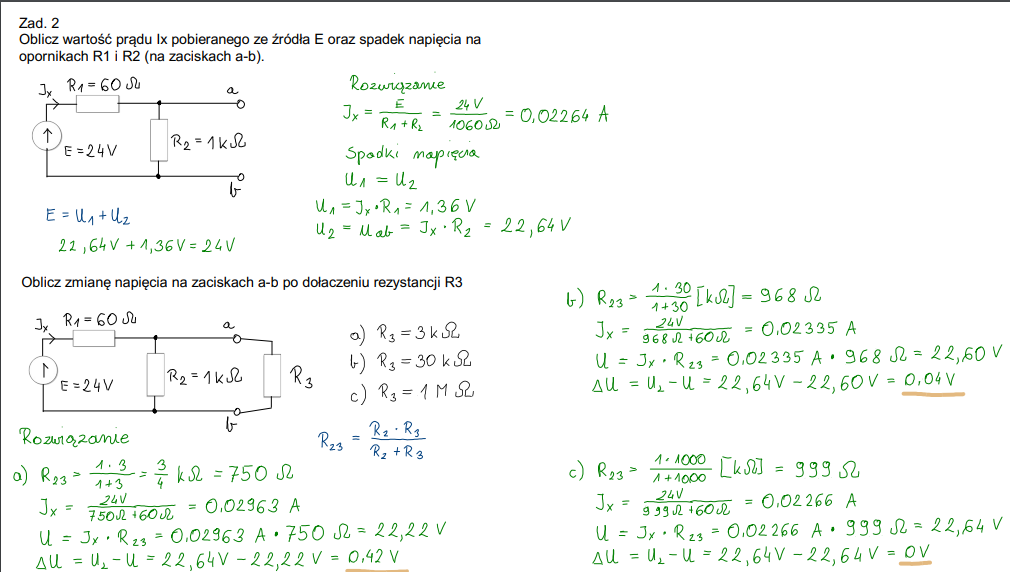 Zad. 2
Oblicz wartość prądu Ix pobieranego ze źródła E oraz spadek napięcia na
opornikach R1 i R2 (na zaciskach a-b).
Jx R1 = 60 Ω a
E = 24V R2 = 1kΩ
b
E = U1 + U2
22,64V + 1,36V = 24V
Rozwiązanie
Jx = E / (R1 + R2) = 24V / 1060Ω = 0,02264 A
Spadki napięcia
U1 = U2
U1 = Jx · R1 = 1,36 V
U2 = Uab = Jx · R2 = 22,64V
Oblicz zmianę napięcia na zaciskach a-b po dołaczeniu rezystancji R3
Jx R1 = 60 Ω a
E = 24V R2 = 1kΩ R3
b
a) R3 = 3kΩ
b) R3 = 30kΩ
c) R3 = 1MΩ
R23 = R2 · R3 / (R2 + R3)
Rozwiązanie
a) R23 = 1·3 / 1+3 = 3/4 kΩ = 750 Ω
Jx = 24V / 750Ω+60Ω = 0,02963 A
U = Jx · R23 = 0,02963 A · 750 Ω = 22,22V
ΔU = U2 - U = 22,64V - 22,22V = 0,42V
b) R23 = 1·30 / 1+30 [kΩ] = 968 Ω
Jx = 24V / 968Ω+60Ω = 0,02335 A
U = Jx · R23 = 0,02335 A · 968 Ω = 22,60V
ΔU = U2 - U = 22,64V - 22,60V = 0,04V
c) R23 = 1·1000 / 1+1000 [kΩ] = 999 Ω
Jx = 24V / 999Ω+60Ω = 0,02266 A
U = Jx · R23 = 0,02266 A · 999 Ω = 22,64V
ΔU = U2 - U = 22,64V - 22,64V = 0V